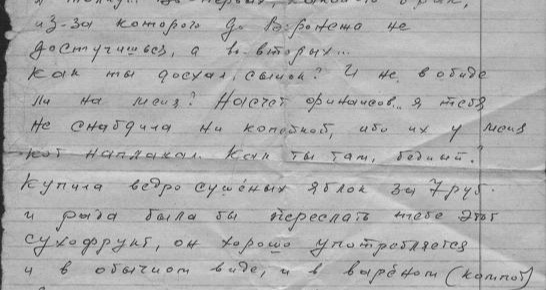 из-за которого до Воронежа не
достучишься, а во-вторых...
Как ты доехал, сынок? И не в обиде
ли на меня? Насчёт финансов.. я тебя
не снабдила ни копейкой, ибо их у меня
кот наплакал. Как ты там, бедный?
Купила ведро сушёных яблок за 7 руб.
и рада была бы переслать тебе этот
сухофрукт, он хорошо употребляется
и в обычном виде, и в варёном (компот)